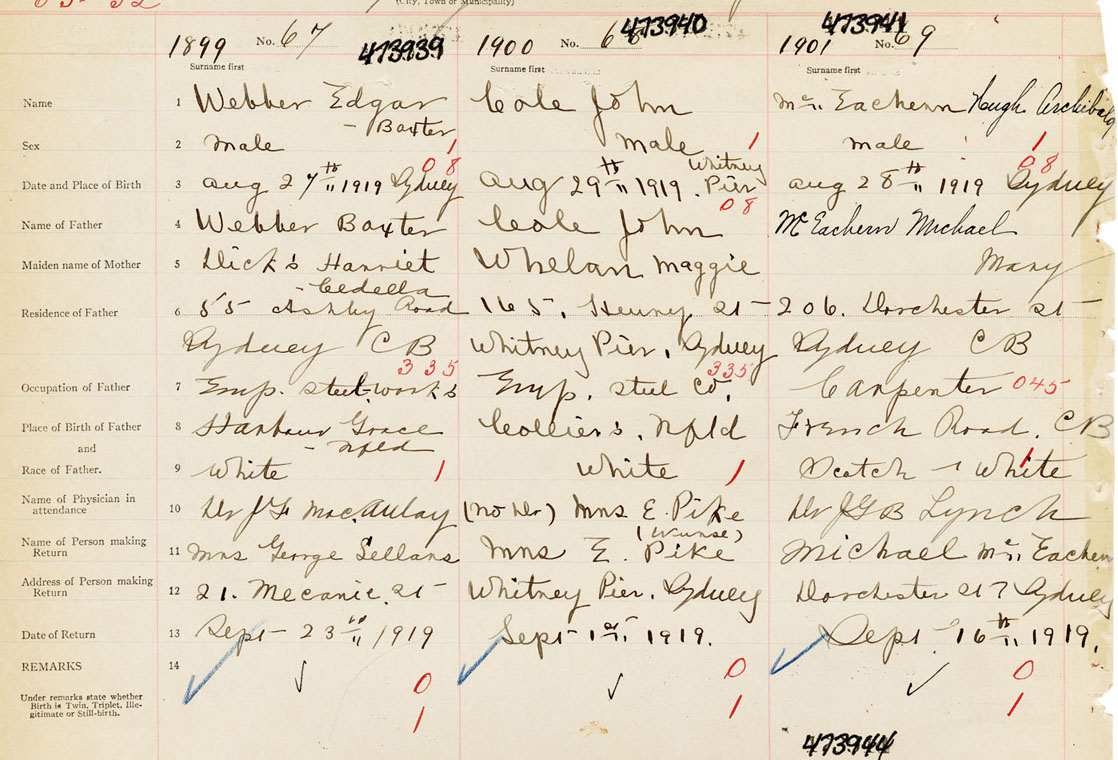 (City, Town or Municipality)
1899 No. 67 473939 1900 No. 68 473940 1901 No. 69 473941
Surname first Surname first Surname first
Name 1 Webber Edgar Cole John Mc Eachern Hugh Archibald
- Baxter
Sex 2 male 1 male 1 male 1
08 Whitney 08
Date and Place of Birth 3 Aug 27th 1919 Sydney Aug 29th 1919. Pier Aug 28th 1919 Sydney
08
Name of Father 4 Webber Baxter Cole John McEachern Michael
Maiden name of Mother 5 Dicks Harriet Whelan Maggie Mary
- Cedella
Residence of Father 6 55 Ashby Road 165, Henry St 206. Dorchester St
Sydney CB Whitney Pier, Sydney Sydney CB
335 335
Occupation of Father 7 Emp. steel works Emp. steel Co, Carpenter 045
Place of Birth of Father 8 Harbour Grace Colliers, Nfld French Road, CB
and - Nfld
Race of Father. 9 White 1 White 1 Scotch - White 1
Name of Physician in attendance 10 Dr J F MacAulay (no Dr) Mrs E. Pike Dr JGB Lynch
(nurse)
Name of Person making Return 11 Mrs George Sellars Mrs E. Pike Michael Mc Eachern
Address of Person making Return 12 21. Mecanic St Whitney Pier, Sydney Dorchester St Sydney
Date of Return 13 Sept 23rd 1919 Sept 1st 1919. Sept 16th 1919.
REMARKS 14 0 0 0
Under remarks state whether
Birth is Twin, Triplet, Ille-
gitimate or Still-birth. 1 1 1
473944